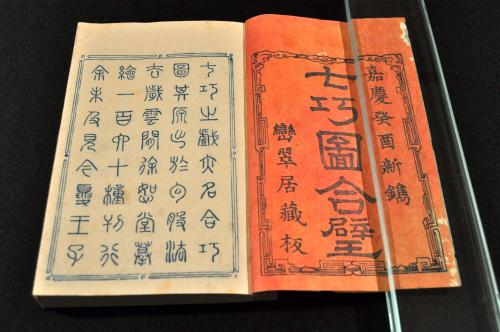 嘉慶癸酉新鐫
七巧圖合璧
巒翠居藏板
七巧之戲亦名合巧
圖其原出於勾股法
去歲雲間徐恕堂摹
繪一百六十種刊行
余未及見今夏王子